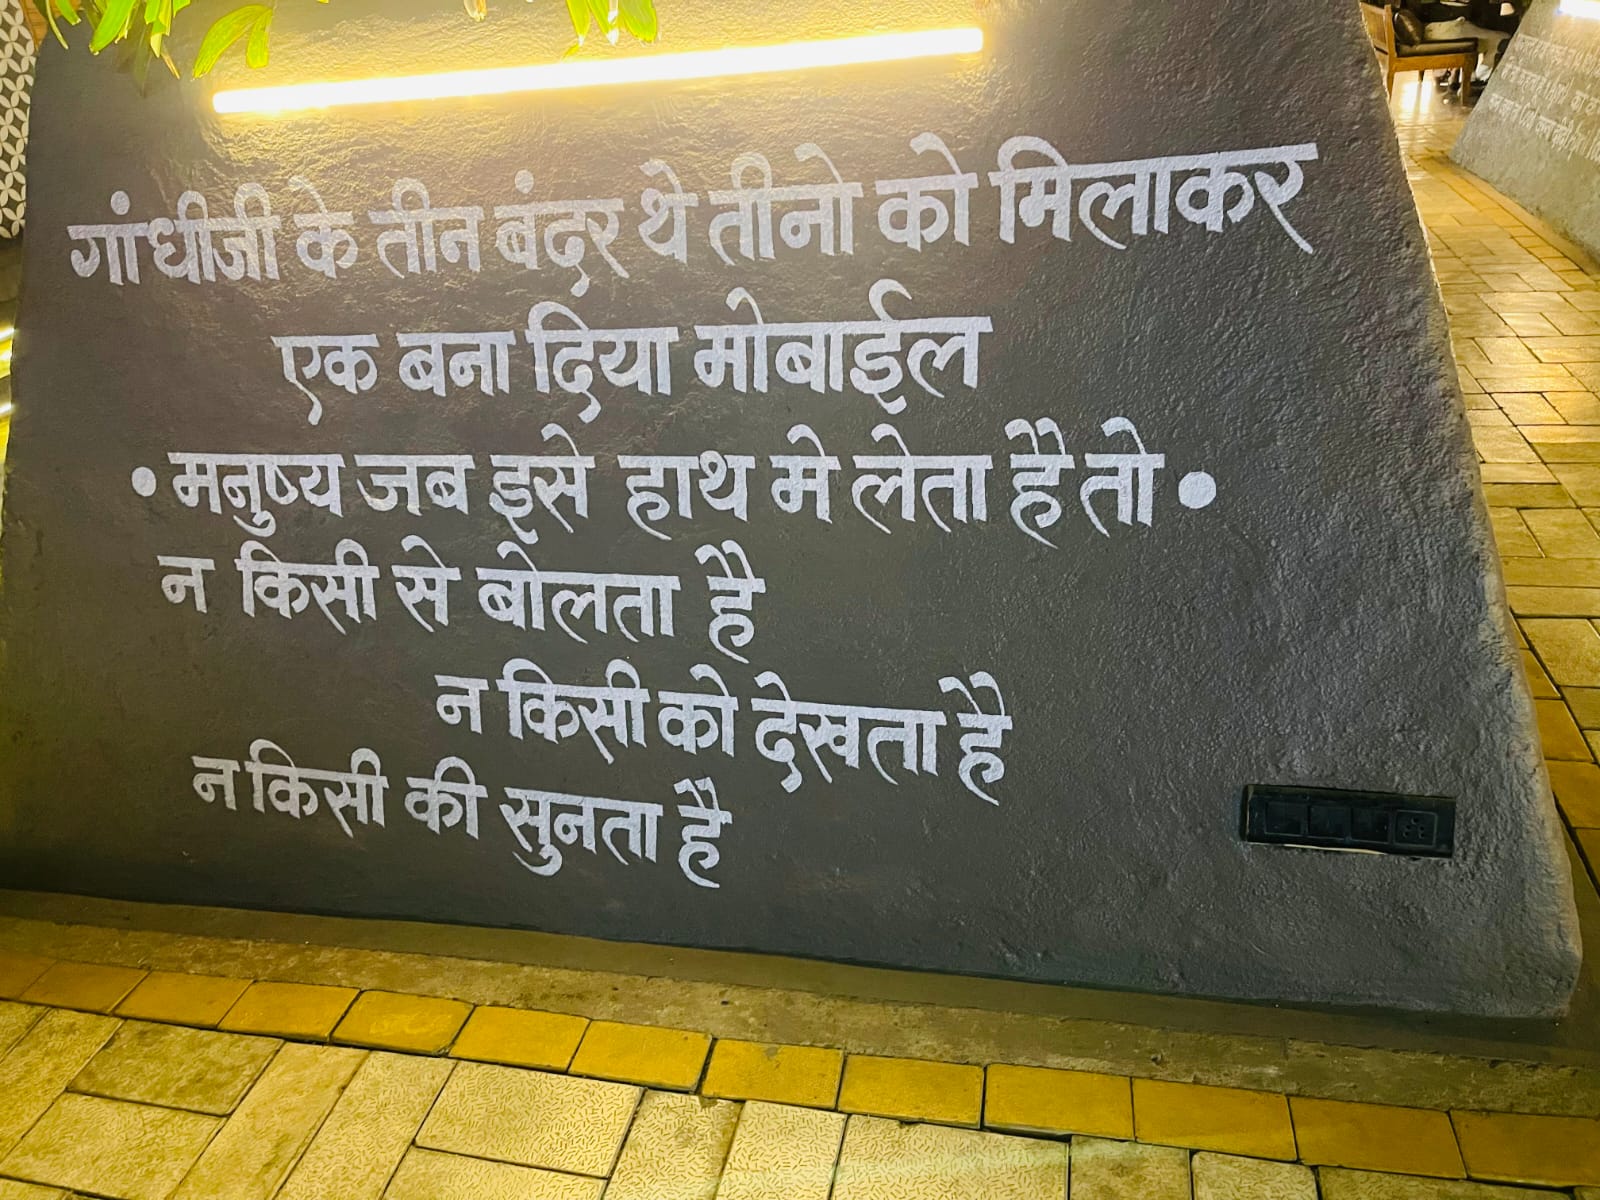 गांधीजी के तीन बंदर थे तीनो को मिलाकर
एक बना दिया मोबाईल
• मनुष्य जब इसे हाथ मे लेता है तो •
न किसी से बोलता है
न किसी को देखता है
न किसी की सुनता है